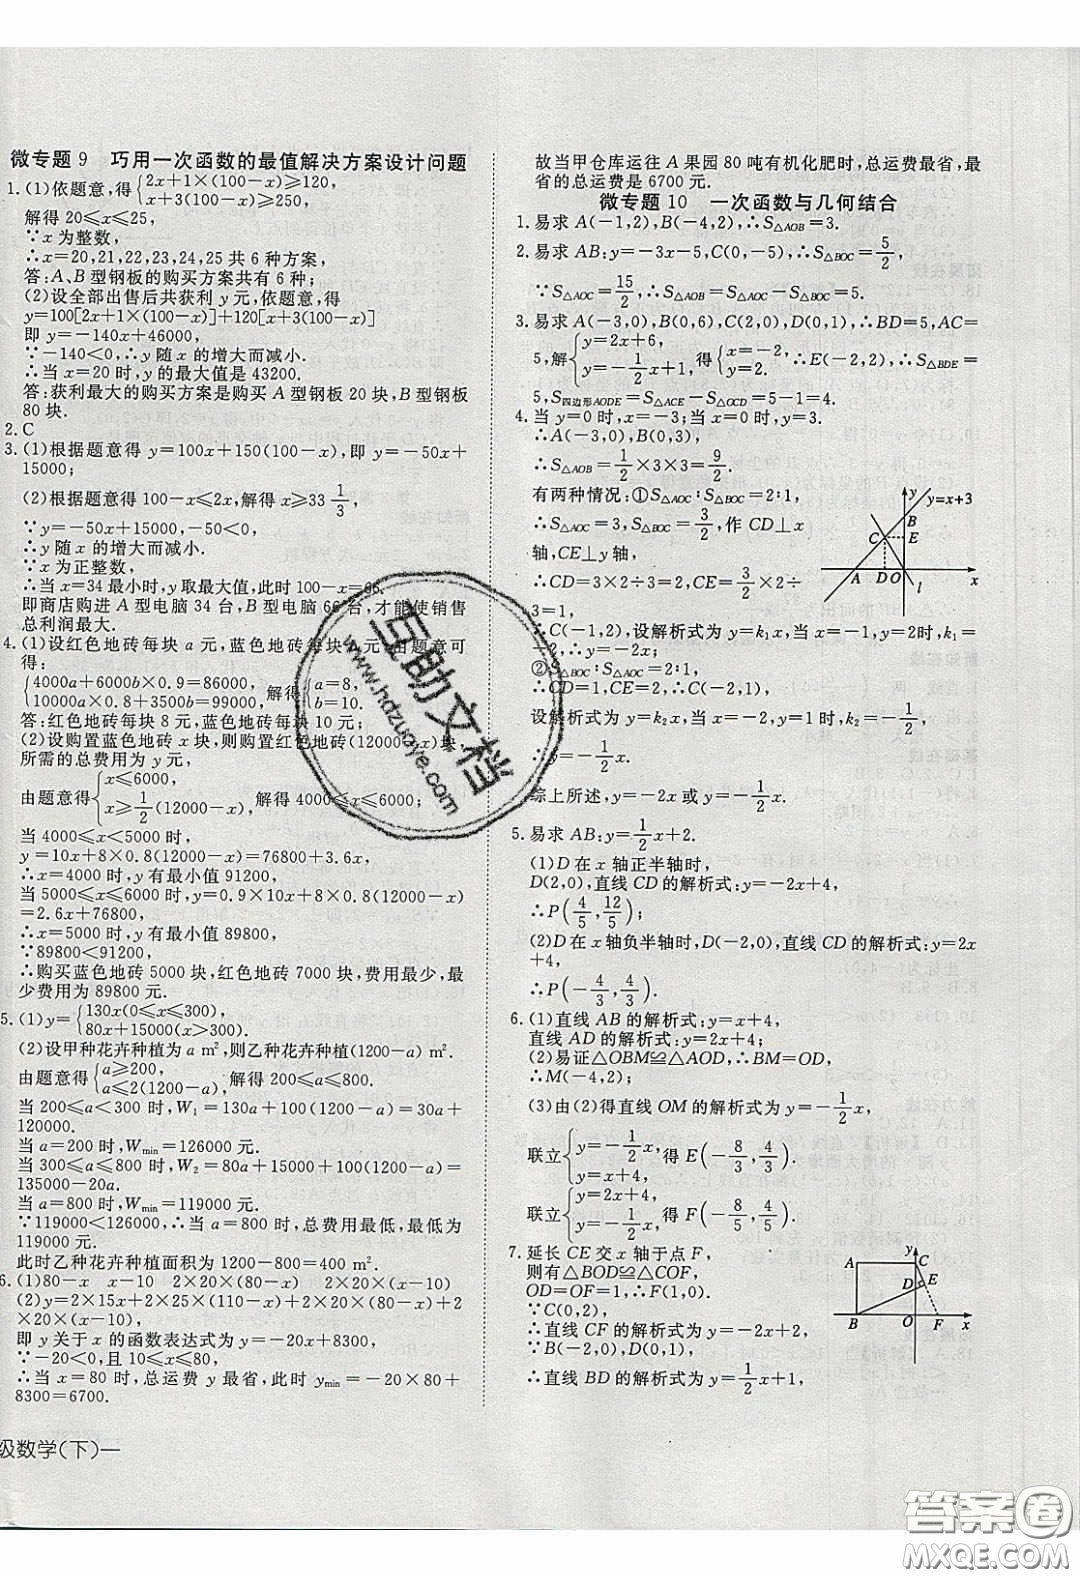 微专题9 巧用一次函数的最值解决方案设计问题
1.(1)依题意,得{2x+1×(100-x)≥120,
x+3(100-x)≥250,
解得20≤x≤25,
∵x为整数,
∴x=20,21,22,23,24,25共6种方案,
答:A、B型钢板的购买方案共有6种;
(2)设全部出售后共获利y元,依题意,得
y=100[2x+1×(100-x)]+120[x+3(100-x)]
即y=-140x+46000,
∵-140<0,∴y随x的增大而减小.
∴当x=20时,y的最大值是43200.
答:获利最大的购买方案是购买A型钢板20块,B型钢板
80块.
2.C
3.(1)根据题意得y=100x+150(100-x),即y=-50x+
15000;
(2)根据题意得100-x≤2x,解得x≥33 1/3,
∵y=-50x+15000,-50<0,
∴y随x的增大而减小.
∵x为正整数,
∴当x=34最小时,y取最大值,此时100-x=66.
即商店购进A型电脑34台,B型电脑66台,才能使销售
总利润最大.
4.(1)设红色地砖每块a元,蓝色地砖每块b元,由题意可
得:
{4000a+6000b×0.9=86000,
10000a×0.8+3500b=99000, 解得{a=8,
b=10.
答:红色地砖每块8元,蓝色地砖每块10元;
(2)设购置蓝色地砖x块,则购置红色地砖(12000-x)块,
所需的总费用为y元,
由题意得{x≤6000,
x≥1/2(12000-x), 解得4000≤x≤6000;
当4000≤x<5000时,
y=10x+8×0.8(12000-x)=76800+3.6x,
∴x=4000时,y有最小值91200,
当5000≤x≤6000时,y=0.9×10x+8×0.8(12000-x)
=2.6x+76800,
∴x=5000时,y有最小值89800,
∵89800<91200,
∴购买蓝色地砖5000块,红色地砖7000块,费用最少,最
少费用为89800元.
5.(1)y={130x(0≤x≤300),
80x+15000(x>300).
(2)设甲种花卉种植为a m²,则乙种花卉种植(1200-a) m².
由题意得{a≥200,
a≤2(1200-a), 解得200≤a≤800.
当200≤a<300时,W₁=130a+100(1200-a)=30a+
120000.
当a=200时,Wmin=126000元.
当300≤a≤800时,W₂=80a+15000+100(1200-a)=
135000-20a.
当a=800时,Wmin=119000元.
∵119000<126000,∴当a=800时,总费用最低,最低为
119000元.
此时乙种花卉种植面积为1200-800=400 m².
6.(1)80-x x-10 2×20×(80-x) 2×20×(x-10)
(2)y=2×15x+2×25×(110-x)+2×20×(80-x)+2
×20×(x-10),
即y关于x的函数表达式为y=-20x+8300,
∵-20<0,且10≤x≤80,
∴当x=80时,总运费y最省,此时ymin=-20×80+
8300=6700.
故当甲仓库运往A果园80吨有机化肥时,总运费最省,最
省的总运费是6700元.
微专题10 一次函数与几何结合
1.易求A(-1,2),B(-4,2),∴S△AOB=3.
2.易求AB:y=-3x-5,C(0,-5),∴S△BOC=5/2,
∵S△AOC=15/2,∴S△AOB=S△AOC-S△BOC=5.
3.易求A(-3,0),B(0,6),C(2,0),D(0,1),∴BD=5,AC=
5,解{y=2x+6,
y=-1/2x+1, 得{x=-2,
y=2. ∴E(-2,2),∴S△BDE=
5,S四边形AODE=S△ACE-S△OCD=5-1=4.
4.当y=0时,x=-3;当x=0时,y=3.
∴A(-3,0),B(0,3),
∴S△AOB=1/2×3×3=9/2.
有两种情况:①S△AOC:S△BOC=2:1,
∴S△AOC=3,S△BOC=3/2,作CD⊥x
轴,CE⊥y轴,
∴CD=3×2÷3=2,CE=3/2×2÷
3=1,
∴C(-1,2),设解析式为y=k₁x,当x=-1时,y=2时,k₁=
-2,∴y=-2x;
②S△BOC:S△AOC=2:1,
∴CD=1,CE=2,∴C(-2,1),
设解析式为y=k₂x,当x=-2时,y=1时,k₂=-1/2,
∴y=-1/2x.
综上所述,y=-2x或y=-1/2x.
y
y=x+3
B
C
E
A D O l x
5.易求AB:y=1/2x+2.
(1)D在x轴正半轴时,
D(2,0),直线CD的解析式:y=-2x+4,
∴P(4/5,12/5);
(2)D在x轴负半轴时,D(-2,0),直线CD的解析式:y=2x
+4,
∴P(-4/3,4/3).
6.(1)直线AB的解析式:y=x+4,
直线AD的解析式:y=2x+4;
(2)易证△OBM≌△AOD,∴BM=OD,
∴M(-4,2);
(3)由(2)得直线OM的解析式为y=-1/2x,
联立{y=-1/2x,
y=x+4, 得E(-8/3,4/3),
联立{y=2x+4,
y=-1/2x, 得F(-8/5,4/5).
7.延长CE交x轴于点F,
则有△BOD≌△COF,
OD=OF=1,∴F(1,0).
∵C(0,2),
∴直线CF的解析式为y=-2x+2;
∵B(-2,0),D(0,1),
∴直线BD的解析式为y=1/2x+1,
y
A C
D E
B O F x
级数学(下)—
互助文档
www.hdzuoye.com
答案圈
MXQE.COM